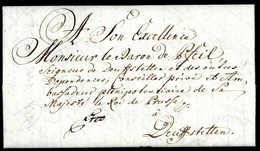 A Son Excellence
Monsieur le Baron de Pfeil,
Seigneur de Deuffstetten et des autres
Dependences, Conseiller privé et Am-
bassadeur plenipotentiaire de Sa
Majesté le Roi de Prusse,
à
Deuffstetten